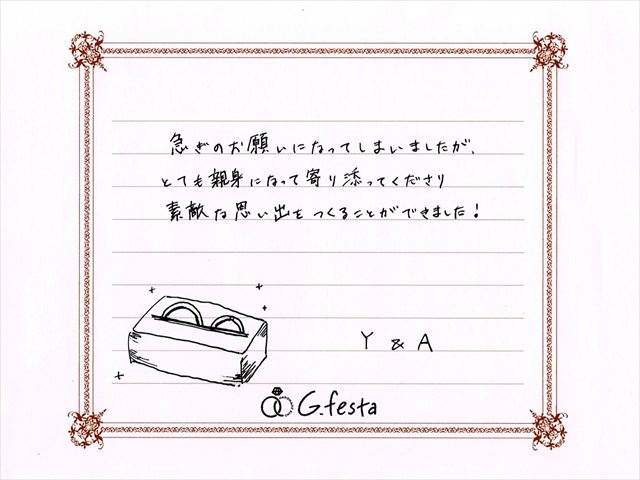 急ぎのお願いになってしまいましたが、
とても親身になって寄り添ってくださり
素敵な思い出をつくることができました!
Y & A
G.festa